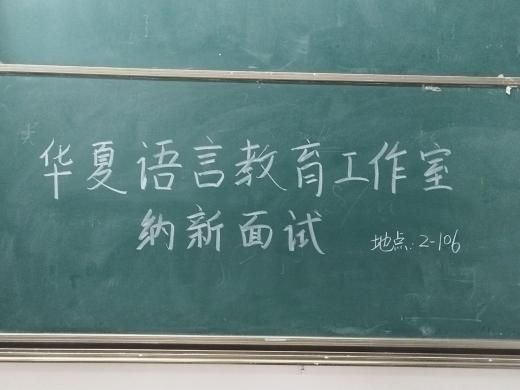 华夏语言教育工作室
纳新面试 地点:2-106